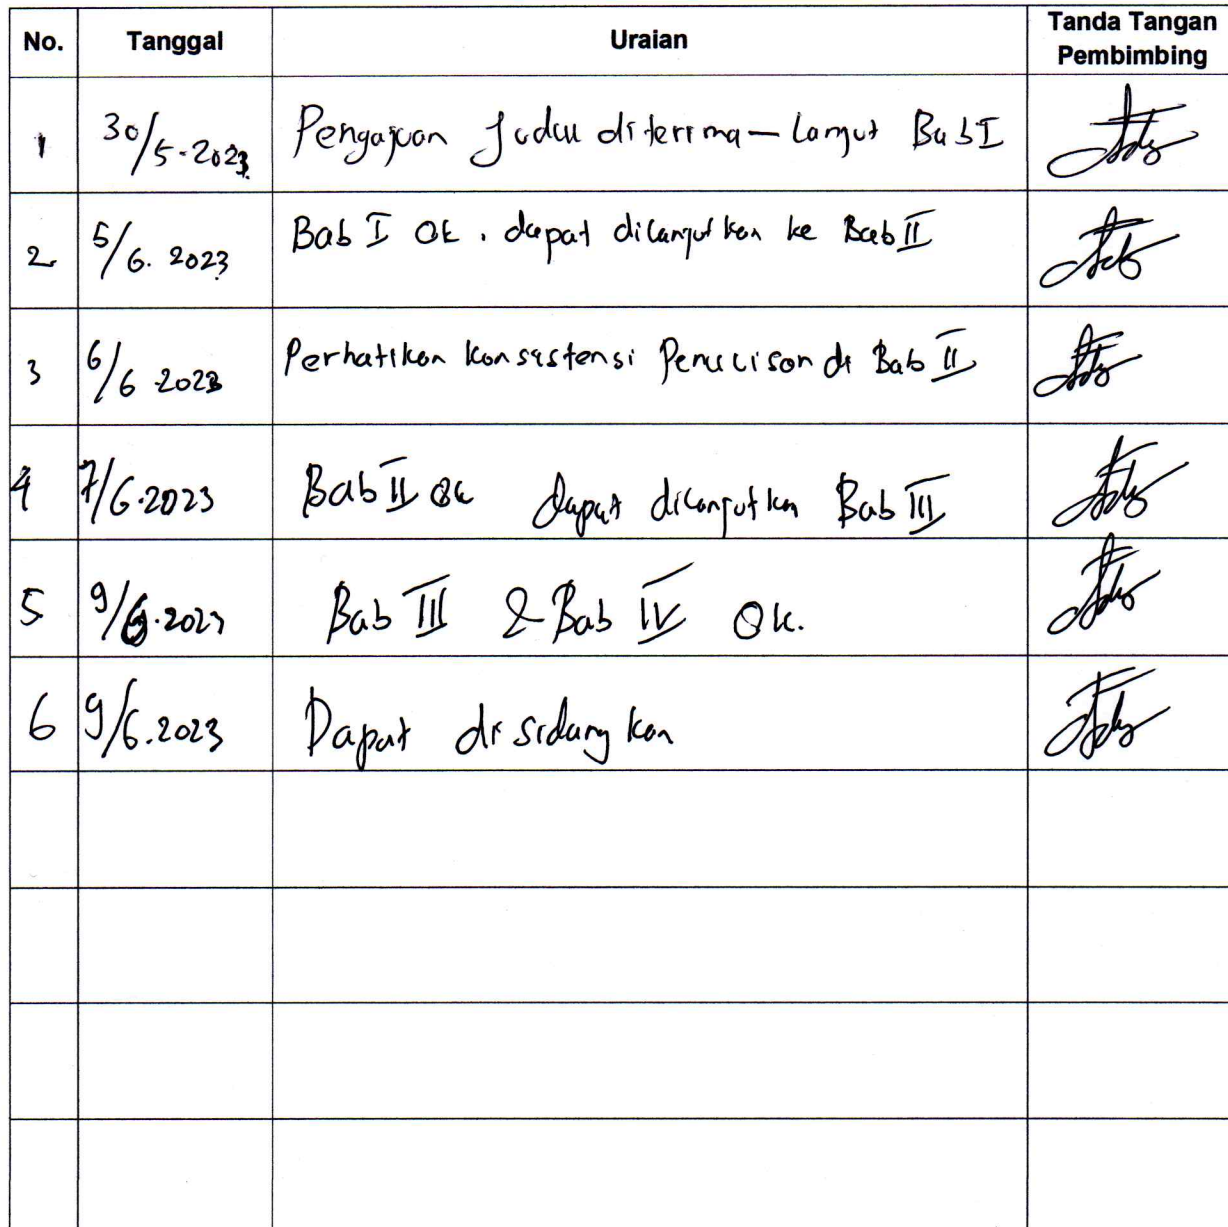 No. Tanggal Uraian Tanda Tangan Pembimbing
1 30/5-2023 Pengajuan Judul diterima — Lanjut Bab I
2 5/6. 2023 Bab I Ok. dapat dilanjutkan ke Bab II
3 6/6 2023 Perhatikan konsistensi Penulisan di Bab II
4 7/6.2023 Bab II Ok dapat dilanjutkan Bab III
5 9/6.2023 Bab III & Bab IV Ok.
6 9/6.2023 Dapat disidangkan